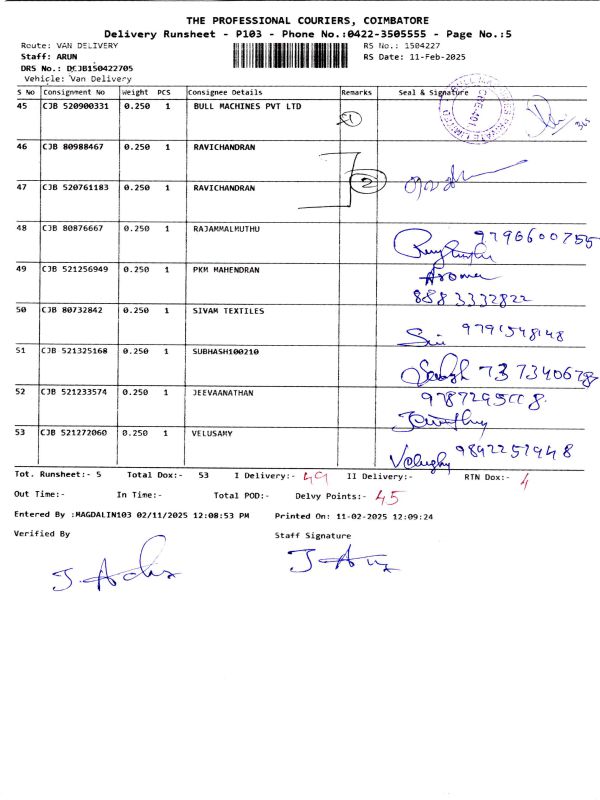 THE PROFESSIONAL COURIERS, COIMBATORE
Delivery Runsheet - P103 - Phone No.:0422-3505555 - Page No.:5
Route: VAN DELIVERY RS No.: 1504227
Staff: ARUN RS Date: 11-Feb-2025
DRS No.: DCJB150422705
Vehicle: Van Delivery
S No Consignment No Weight PCS Consignee Details Remarks Seal & Signature
45 CJB 520900331 0.250 1 BULL MACHINES PVT LTD
46 CJB 80988467 0.250 1 RAVICHANDRAN
2
47 CJB 520761183 0.250 1 RAVICHANDRAN
48 CJB 80876667 0.250 1 RAJAMMALMUTHU 9796600755
49 CJB 521256949 0.250 1 PKM MAHENDRAN
8883332822
50 CJB 80732842 0.250 1 SIVAM TEXTILES
9791548148
51 CJB 521325168 0.250 1 SUBHASH100210
7373406787
52 CJB 521233574 0.250 1 JEEVAANATHAN
53 CJB 521272060 0.250 1 VELUSAMY
9892251948
Tot. Runsheet:- 5 Total Dox:- 53 I Delivery:- 49 II Delivery:- RTN Dox:- 4
Out Time:- In Time:- Total POD:- Delvy Points:- 45
Entered By :MAGDALIN103 02/11/2025 12:08:53 PM Printed On: 11-02-2025 12:09:24
Verified By Staff Signature